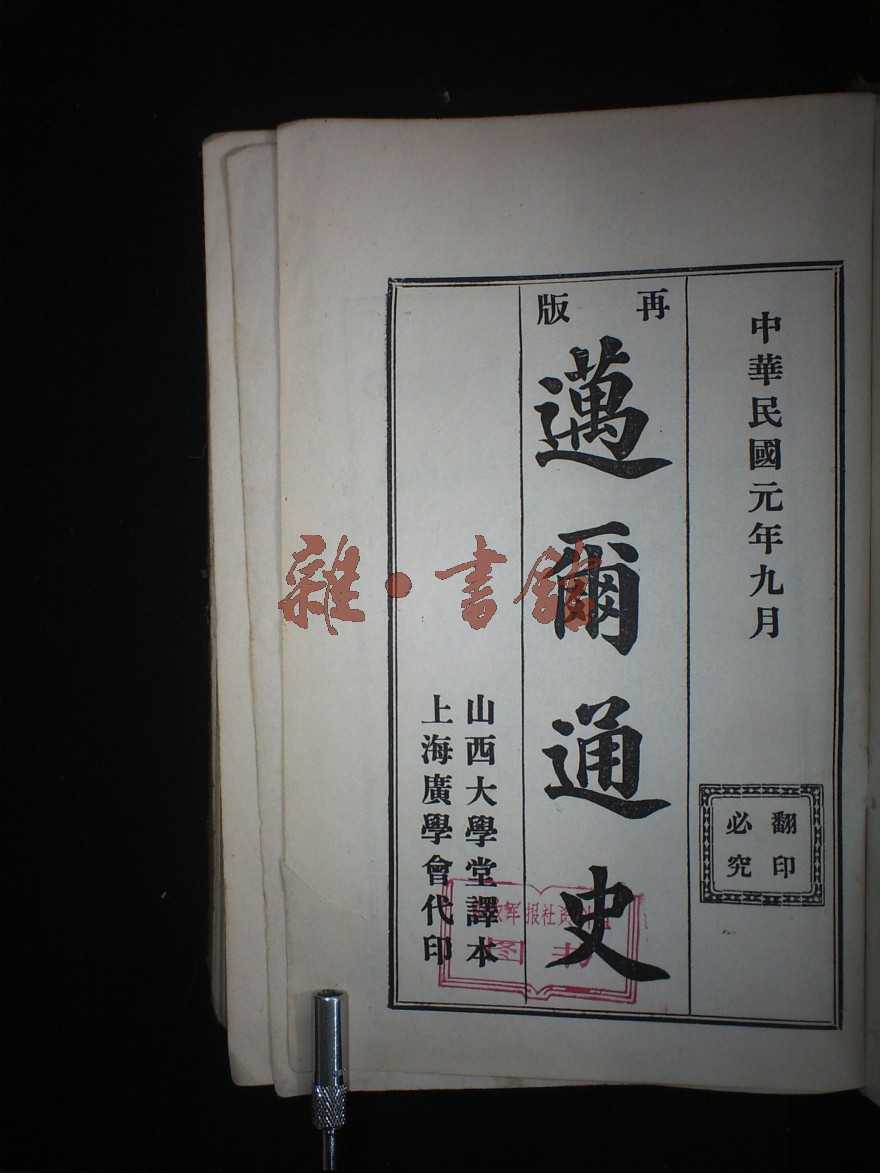 中華民國元年九月
翻印
必究
再版
邁爾通史
山西大學堂譯本
上海廣學會代印
雜·書館
军报社资
图书